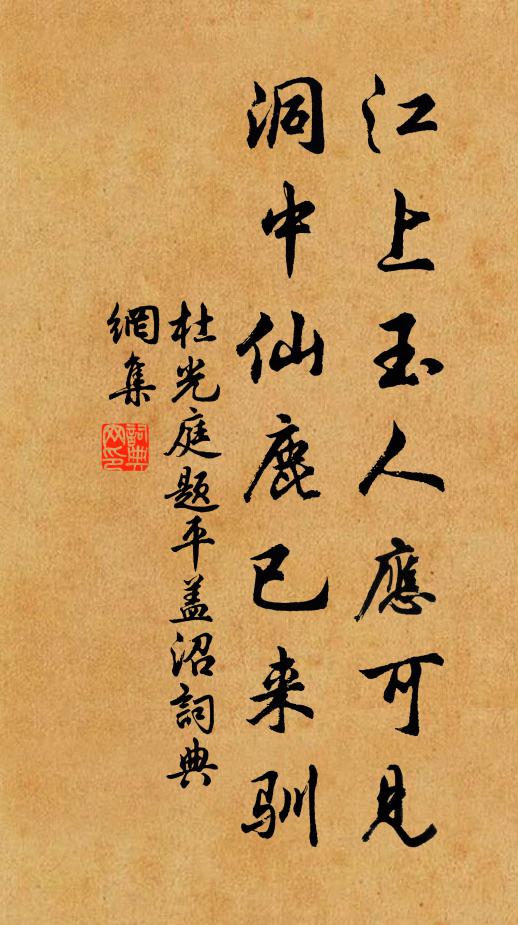 江上玉人應可見
洞中仙鹿已来馴
杜光庭題平盖沼詞典
網集
詞典
网印